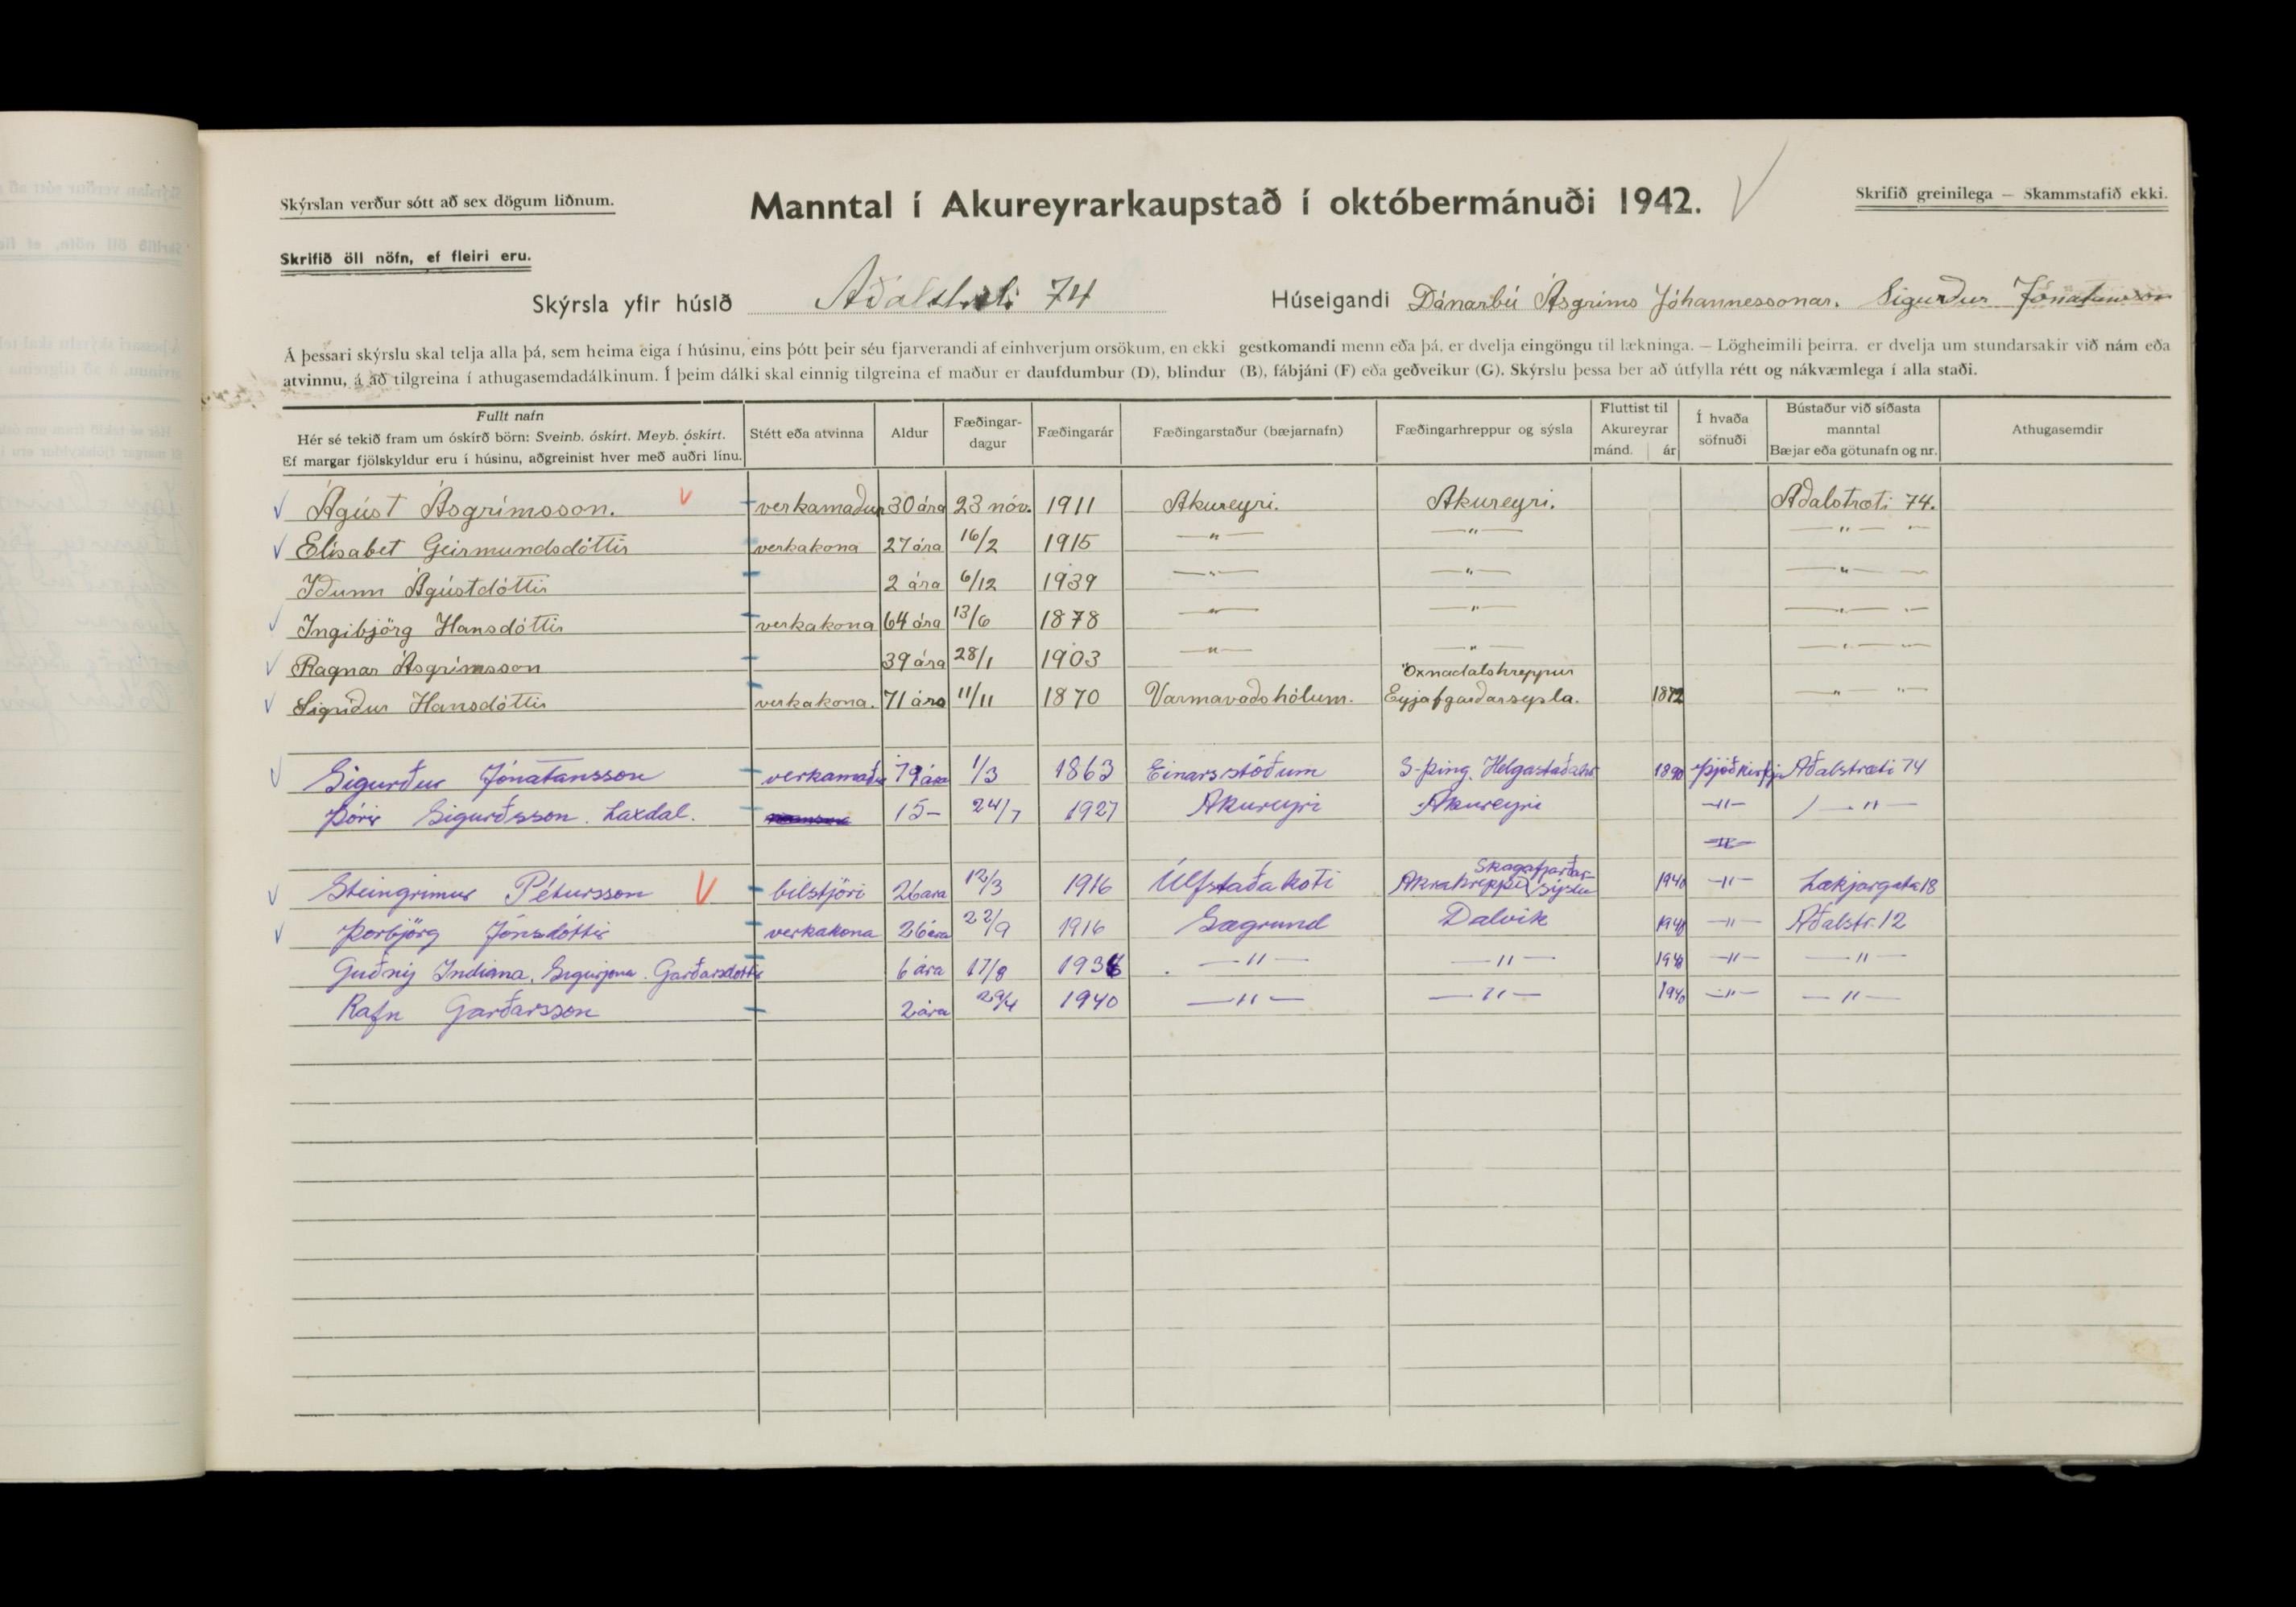 Skýrslan verður sótt að sex dögum liðnum.
Manntal í Akureyrarkaupstað í októbermánuði 1942.
Skrifið greinilega — Skammstafið ekki.
Skrifið öll nöfn, ef fleiri eru.
Skýrsla yfir húsið Aðalstræti 74 Húseigandi Dánarbú Ásgríms Jóhannessonar. Sigurður Jónatansson
Á þessari skýrslu skal telja alla þá, sem heima eiga í húsinu, eins þótt þeir séu fjarverandi af einhverjum orsökum, en ekki gestkomandi menn eða þá, er dvelja eingöngu til lækninga. — Lögheimili þeirra, er dvelja um stundarsakir við nám eða
atvinnu, á að tilgreina í athugasemdadálkinum. Í þeim dálki skal einnig tilgreina ef maður er daufdumbur (D), blindur (B), fábjáni (F) eða geðveikur (G). Skýrslu þessa ber að útfylla rétt og nákvæmlega í alla staði.
Fullt nafn
Hér sé tekið fram um óskírð börn: Sveinb. óskírt. Meyb. óskírt.
Ef margar fjölskyldur eru í húsinu, aðgreinist hver með auðri línu.
Stétt eða atvinna
Aldur
Fæðingar-
dagur
Fæðingarár
Fæðingarstaður (bæjarnafn)
Fæðingarhreppur og sýsla
Fluttist til
Akureyrar
mánd. ár
Í hvaða
söfnuði
Bústaður við síðasta
manntal
Bæjar eða götunafn og nr.
Athugasemdir
Ágúst Ásgrímsson. verkamaður 30 ára 23 nóv. 1911 Akureyri. Akureyri. Aðalstræti 74.
Elísabet Geirmundsdóttir verkakona 27 ára 16/2 1915 — " — — " — — " — " —
Iðunn Ágústdóttir 2 ára 6/12 1939 — " — — " — — " — —
Ingibjörg Hansdóttir verkakona 64 ára 13/6 1878 — " — — " — — " — " —
Ragnar Ásgrímsson 39 ára 28/1 1903 — " — — " — — " — " —
Öxnadalshreppur
Sigríður Hansdóttir verkakona. 71 ára 11/11 1870 Varmavaðshólum. Eyjafgarðarsysla. 1872 — " — " —
Sigurður Jónatansson verkamaður 79 ára 1/3 1863 Einarsstöðum S-Þing. Helgastaðahr 1890 Þjóðkirkja Aðalstræti 74
Þórir Sigurðsson. Laxdal. 15 — 24/7 1927 Akureyri Akureyri — " — — " —
— " —
Skagafjarðar-
Steingrímur Pétursson bílstjóri 26 ara 12/3 1916 Úlfstaðakoti Akrahreppi sýslu 1940 — " — Lækjargata 18
Þorbjörg Jónsdóttir verkakona 26 ára 22/9 1916 Sægrund Dalvík 1940 — " — Aðalstr. 12
Guðný Indíana. Sigurjóna. Garðarsdóttir 6 ára 17/8 1936 — " — — " — 1940 — " — — " —
Rafn Garðarsson 2 ára 29/4 1940 — " — — " — 1940 — " — — " —